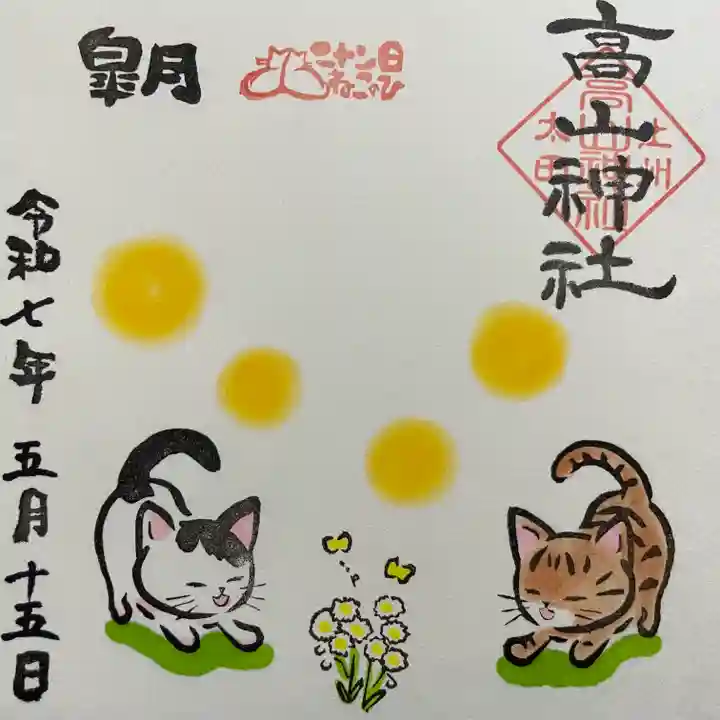 高山神社
上州
高山神社
太田
二十二日
ねこのひ
皐月
令和七年 五月十五日